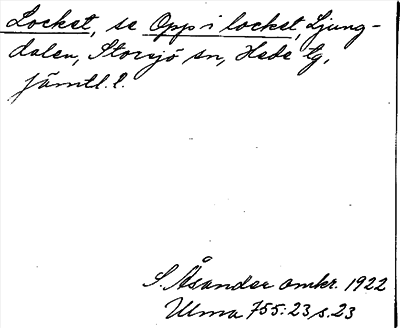 Locket, se Opp i locket, Ljung-
dalen, Storsjö sn, Hede tg,
Jämtl. l.
S. Åsander omkr. 1922
Ulma 755:23 s. 23